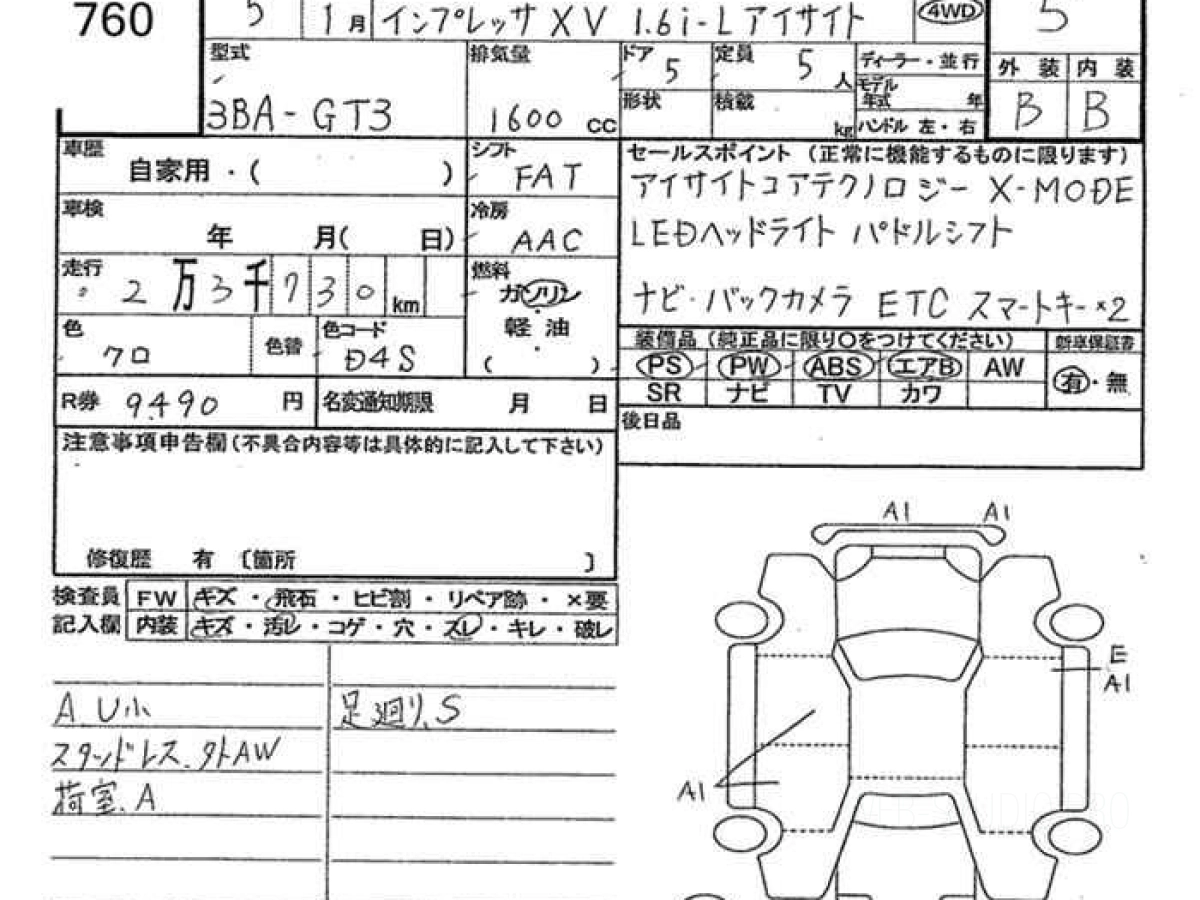 760
5 1月 インプレッサ XV 1.6i-Lアイサイト 4WD 5
型式 3BA-GT3
排気量 1600 CC
ドア 5
定員 5人
形状
積載 kg
ディーラー・並行
モデル年式 年
ハンドル 左・右
外装 内装
B B
車歴 自家用・( )
シフト FAT
セールスポイント(正常に機能するものに限ります)
アイサイトコアテクノロジー X-MODE
LEDヘッドライト パドルシフト
ナビ・バックカメラ ETC スマートキー×2
車検 年 月( 日)
冷房 AAC
走行 2万3千730km
燃料 ガソリン
軽油
( )
色 クロ
色替
色コード D4S
装備品(純正品に限り○をつけてください) 新車保証書
PS PW ABS エアB AW 有・無
SR ナビ TV カワ
R券 9490 円 名変通知期限 月 日
後日品
注意事項申告欄(不具合内容等は具体的に記入して下さい)
修復歴 有 〔箇所 〕
検査員 FW キズ・飛石・ヒビ割・リペア跡・×要
記入欄 内装 キズ・汚レ・コゲ・穴・スレ・キレ・破レ
A.U小 足廻り.S
スタッドレス.外AW
荷室.A
A1 A1
E
A1
A1